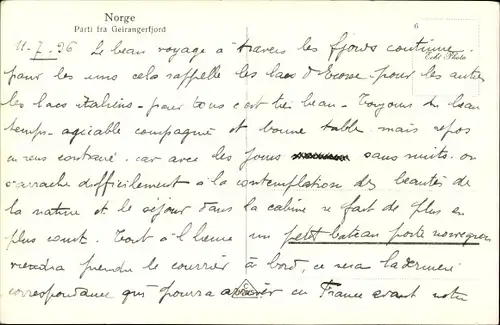 Norge
Parti fra Geirangerfjord
6
Echt Photo
11-7-36 Le beau voyage à travers les fjords continue.
pour les uns cela rappelle les lacs d'Ecosse - pour les autres
les lacs italiens - pour tous c'est très beau - Toujours du beau
temps - agréable compagnie et bonne table - mais repos
car avec les jours sans nuits. on
s'arrache difficilement à la contemplation des beautés de
la nature et le séjour dans la cabine se fait de plus en
plus court. Tout à l'heure un petit bateau poste norvegien
viendra prendre le courrier à bord, ce sera la dernière
correspondance qui pourra arriver en France avant notre